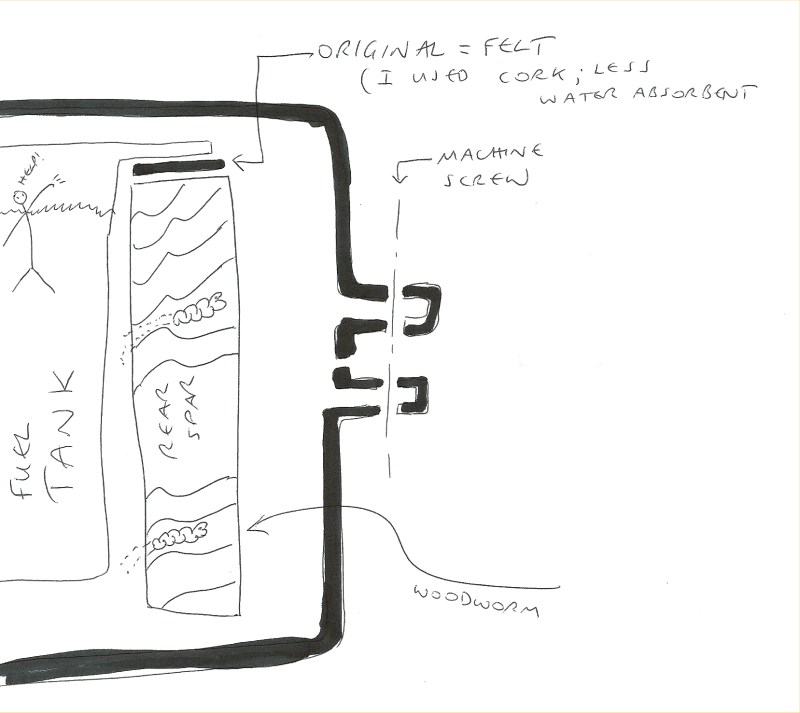 ORIGINAL = FELT
(I USED CORK; LESS
WATER ABSORBENT
MACHINE
SCREW
HELP!
FUEL
TANK
REAR
SPAR
WOODWORM